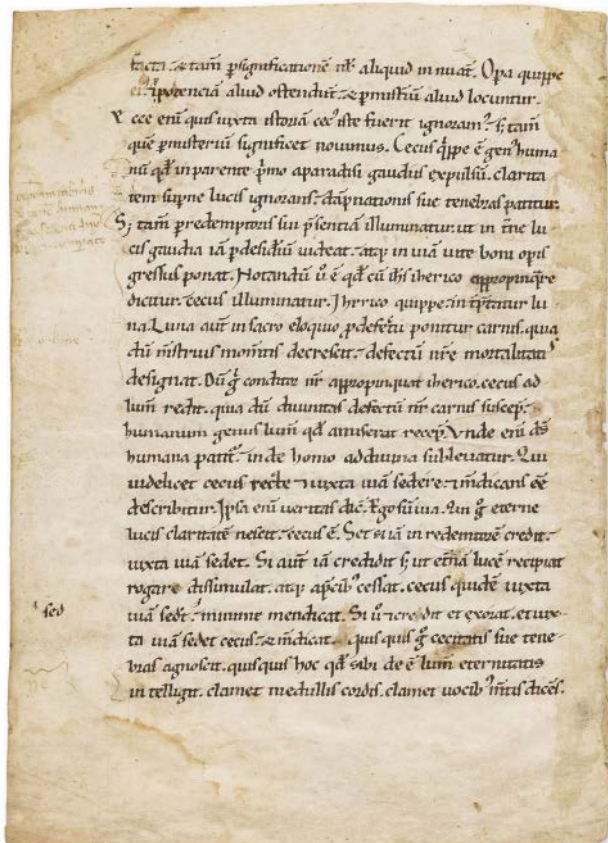 facta. & tam̄ p̱ significationē nob̄ aliquid innuat. Opa quippe
et p̱ potenciā aliud ostendūt. & p̱ misteriū aliud locuntur.
Ecce enī quis iuxta istoriā cec⁹ iste fuerit ignoram⁹. s; tam̄
que p̱ misterium significet nouimus. Cecus q̄ppe ē gen⁹ huma
nū qđ in parente p̄mo a paradisi gaudiis expulsū. clarita
tem sup̱ne lucis ignorans. dāpnationis sue tenebras patitur.
S; tam̄ p̱ redemptoris sui p̄sentiā illuminatur. ut int̄ne lu
cis gaudia iā p̱ desidiū uideat. atq; in uiā uite boni op̱is
gressus ponat. Notandū ū ē qđ cū ih̄s iherico appropinq̄re
dicitur. cecus illuminatur. Iherico quippe int̄p̄tatur lu
na. Luna aut̄ in sacro eloquio p̱ defectu ponitur carnis. quia
dū mīstruis mom̄tis decrescit. defectū nr̄e mortalitatis
designat. Dū ḡ conditor nr̄ appropinquat iherico. cecus ad
lum̄ redit. quia dū diuinitas defectū nr̄ carnis suscep̄.
humanum genus lum̄ qđ amiserat recep̄. Vnde enī ds̄
humana patit̄. inde homo ad diuina subleuatur. Qui
uidelicet cecus recte & iuxta uiā sedere & mēdicans eē
describitur. Ipsa enī ueritas dic̄. Ego sū uia. Qui ḡ eterne
lucis claritatē nescit. cecus ē. Set si iā in redemtorē credit.
iuxta uiā sedet. Si aut̄ iā credidit s; ut et̄nā lucē recipiat
rogare dissimulat. atq; a p̄cib⁹ cessat. cecus quidē iuxta
sed
uiā sedet. minime mendicat. Si ū & credit et exorat. et iux
ta uiā sedet cecus. & mēdicat. Quisquis ḡ cecitatis sue tene
bras agnoscit. quisquis hoc qđ sibi deē lum̄ eternitatis
intelligit. clamet medullis cordis. clamet uocib⁹ m̄tis dicēs.